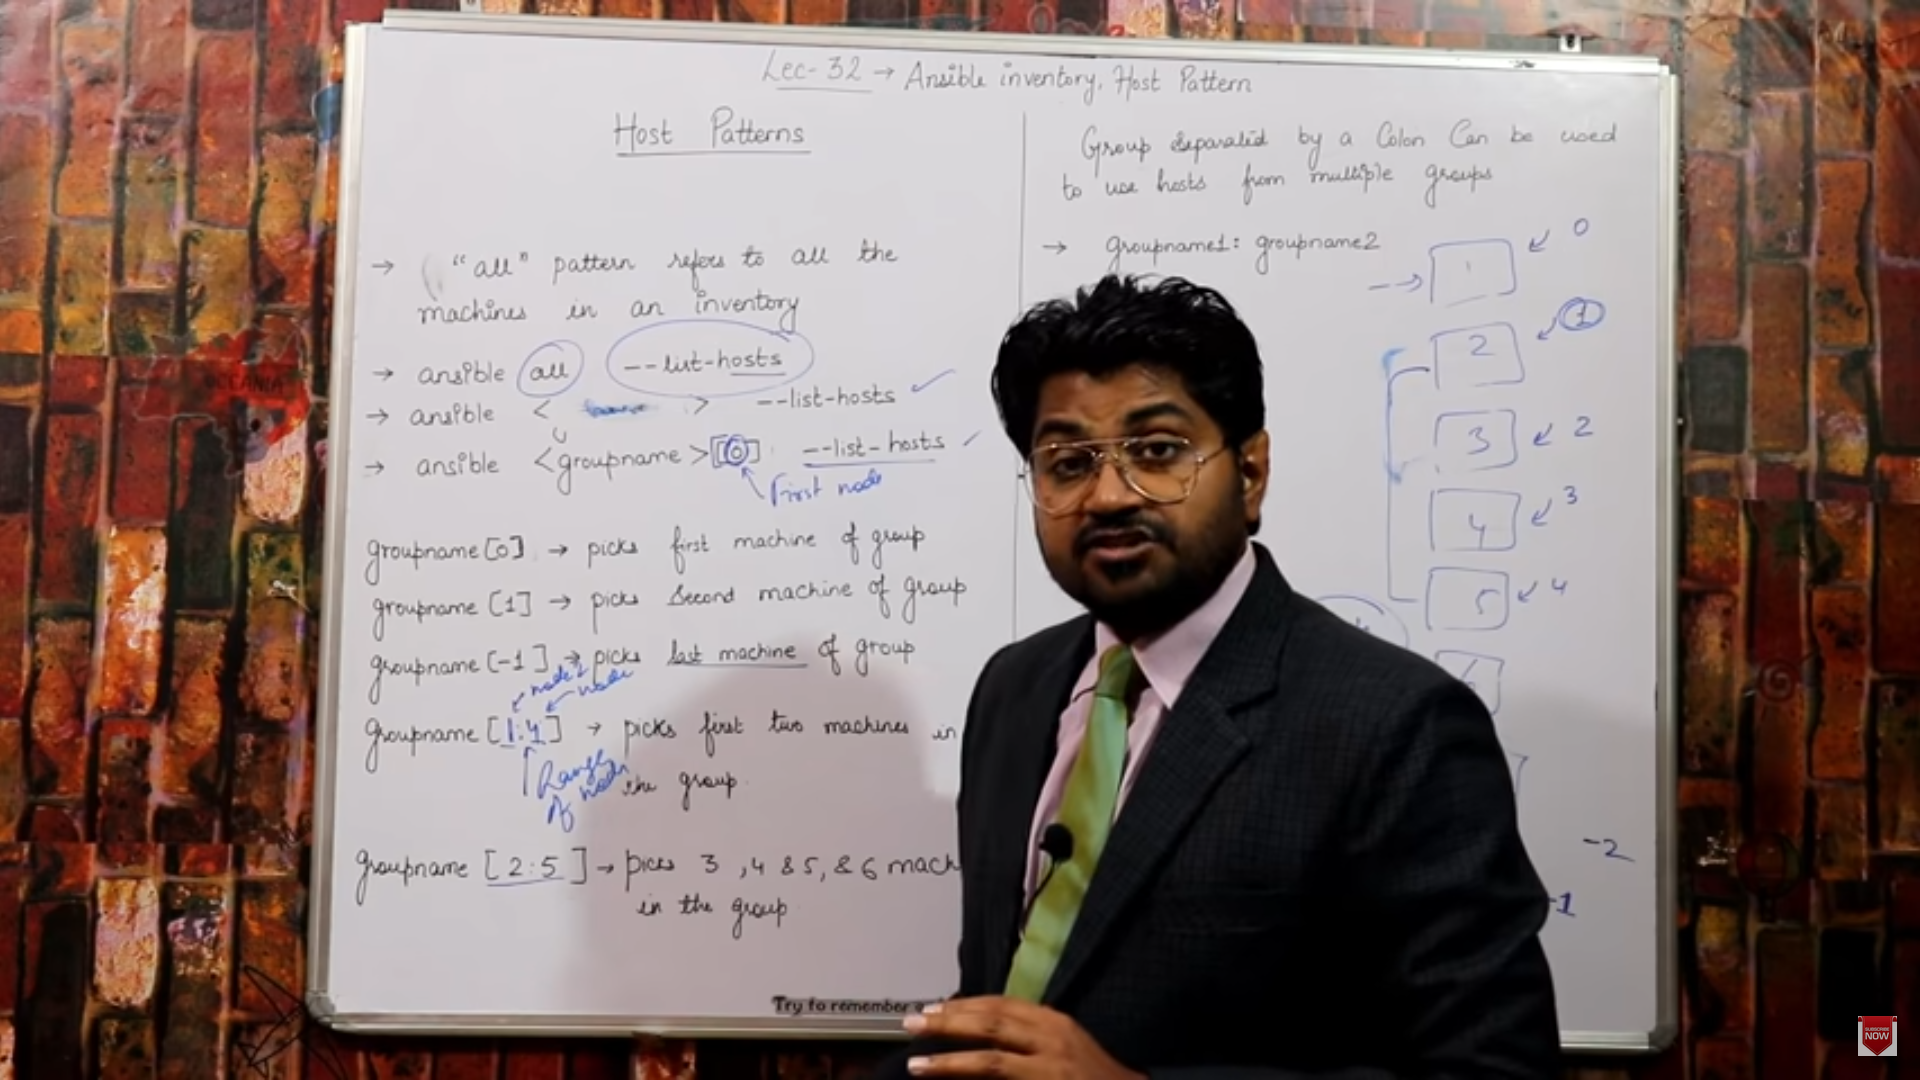 Lec-32 → Ansible inventory, Host Pattern
Host Patterns
→ "all" pattern refers to all the
machines in an inventory
→ ansible all --list-hosts
→ ansible < > --list-hosts
→ ansible <groupname>[0] --list-hosts
First node
groupname [0] → picks first machine of group
groupname [1] → picks Second machine of group
groupname [-1] → picks last machine of group
node
groupname [1:4] → picks first two machines in
the group.
Range
of
groupname [2:5] → picks 3, 4 & 5, & 6 mach
in the group
Group Separated by a Colon Can be used
to use hosts from multiple groups
→ groupname1: groupname2
1 0
2 1
3 2
4 3
5 4
-2
-1
Try to remember
SUBSCRIBE
NOW
OCEANIA